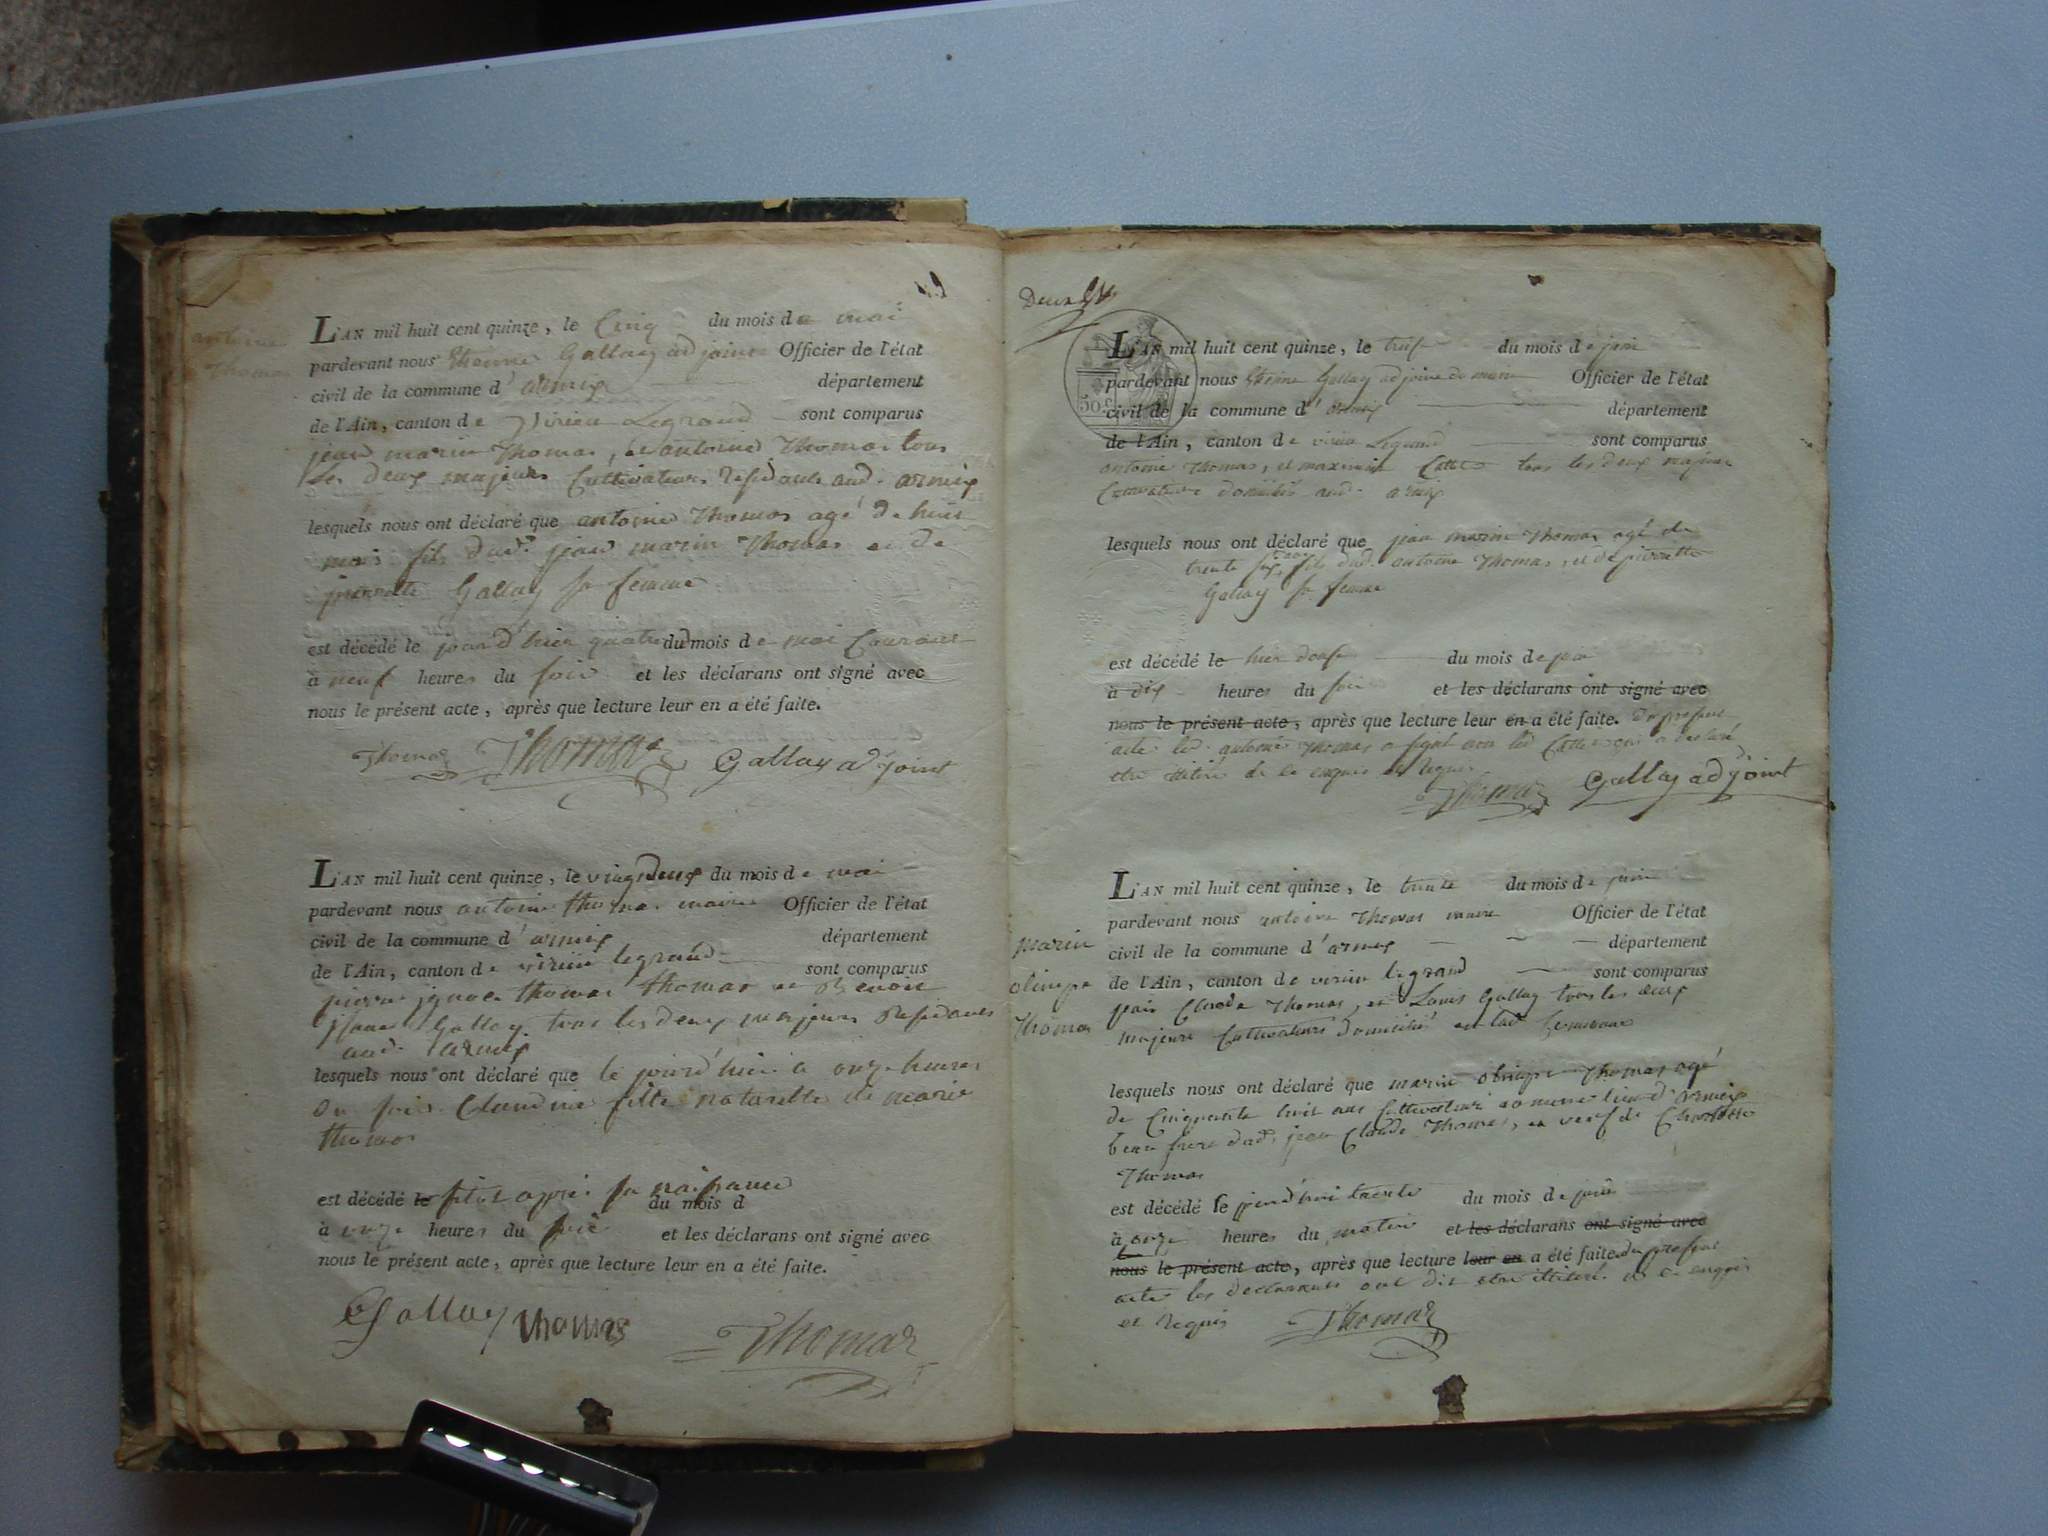 antoine
Thomas
L'AN mil huit cent quinze, le Cinq du mois de mai
pardevant nous Etienne Gallay adjoint Officier de l'état
civil de la commune d'armix département
de l'Ain, canton de Virieu Legrand sont comparus
jean marin Thomas, et antoine Thomas tous
Les deux majeurs Cultivateurs Residants aud. armix
lesquels nous ont déclaré que antoine Thomas agé de huit
mois fils dud. jean marin Thomas et de
pierrette Gallay sa femme
est décédé le jourd'hier quatre du mois de mai Courant
à neuf heures du soir et les déclarans ont signé avec
nous le présent acte, après que lecture leur en a été faite.
Thomas Thomas Gallay adjoint
L'AN mil huit cent quinze, le vingtdeux du mois de mai
pardevant nous antoine thomas maire Officier de l'état
civil de la commune d'armix département
de l'Ain, canton de virieu legrand sont comparus
pierre ignace thomas thomas et Benoit
Gallay tous les deux majeurs Residants
aud. armix
lesquels nous ont déclaré que le jourd'hier à onze heures
du soir Claudine fille naturelle de marie
thomas
est décédé le sitot après sa naissance du mois d
à onze heures du soir et les déclarans ont signé avec
nous le présent acte, après que lecture leur en a été faite.
Gallay thomas Thomas
Deux
50 c.
L'AN mil huit cent quinze, le treise du mois de juin
pardevant nous Etienne Gallay adjoint du maire Officier de l'état
civil de la commune d'armix département
de l'Ain, canton de virieu Legrand sont comparus
antoine Thomas, et maximin tous les deux majeurs
Cultivateurs domiciliés aud. armix
lesquels nous ont déclaré que jean marin Thomas agé de
trente six ans fils dud. antoine Thomas, et de pierrette
Gallay sa femme
est décédé le hier douse du mois de juin
à dix heures du soir et les déclarans ont signé avec
nous le présent acte, après que lecture leur en a été faite. du present
acte led. antoine Thomas a signé non led. qui a declaré
etre illitéré de ce enquis et requis
Thomas Gallay adjoint
marin
olimpe
Thomas
L'AN mil huit cent quinze, le trente du mois de juin
pardevant nous antoine Thomas maire Officier de l'état
civil de la commune d'armix département
de l'Ain, canton de virieu legrand sont comparus
jean Claude Thomas, et Louis Gallay tous les deux
majeurs Cultivateurs domiciliés en lad. Commune
lesquels nous ont déclaré que marin olimpe Thomas agé
de Cinquante huit ans Cultivateur au meme lieu d'armix
beau frere dud. jean Claude Thomas, et veuf de
Thomas
est décédé le jourd'hui trente du mois de juin
à onze heures du matin et les déclarans ont signé avec
nous le présent acte, après que lecture leur en a été faite du present
acte les declarants ont dit etre illiteré de ce enquis
et requis Thomas